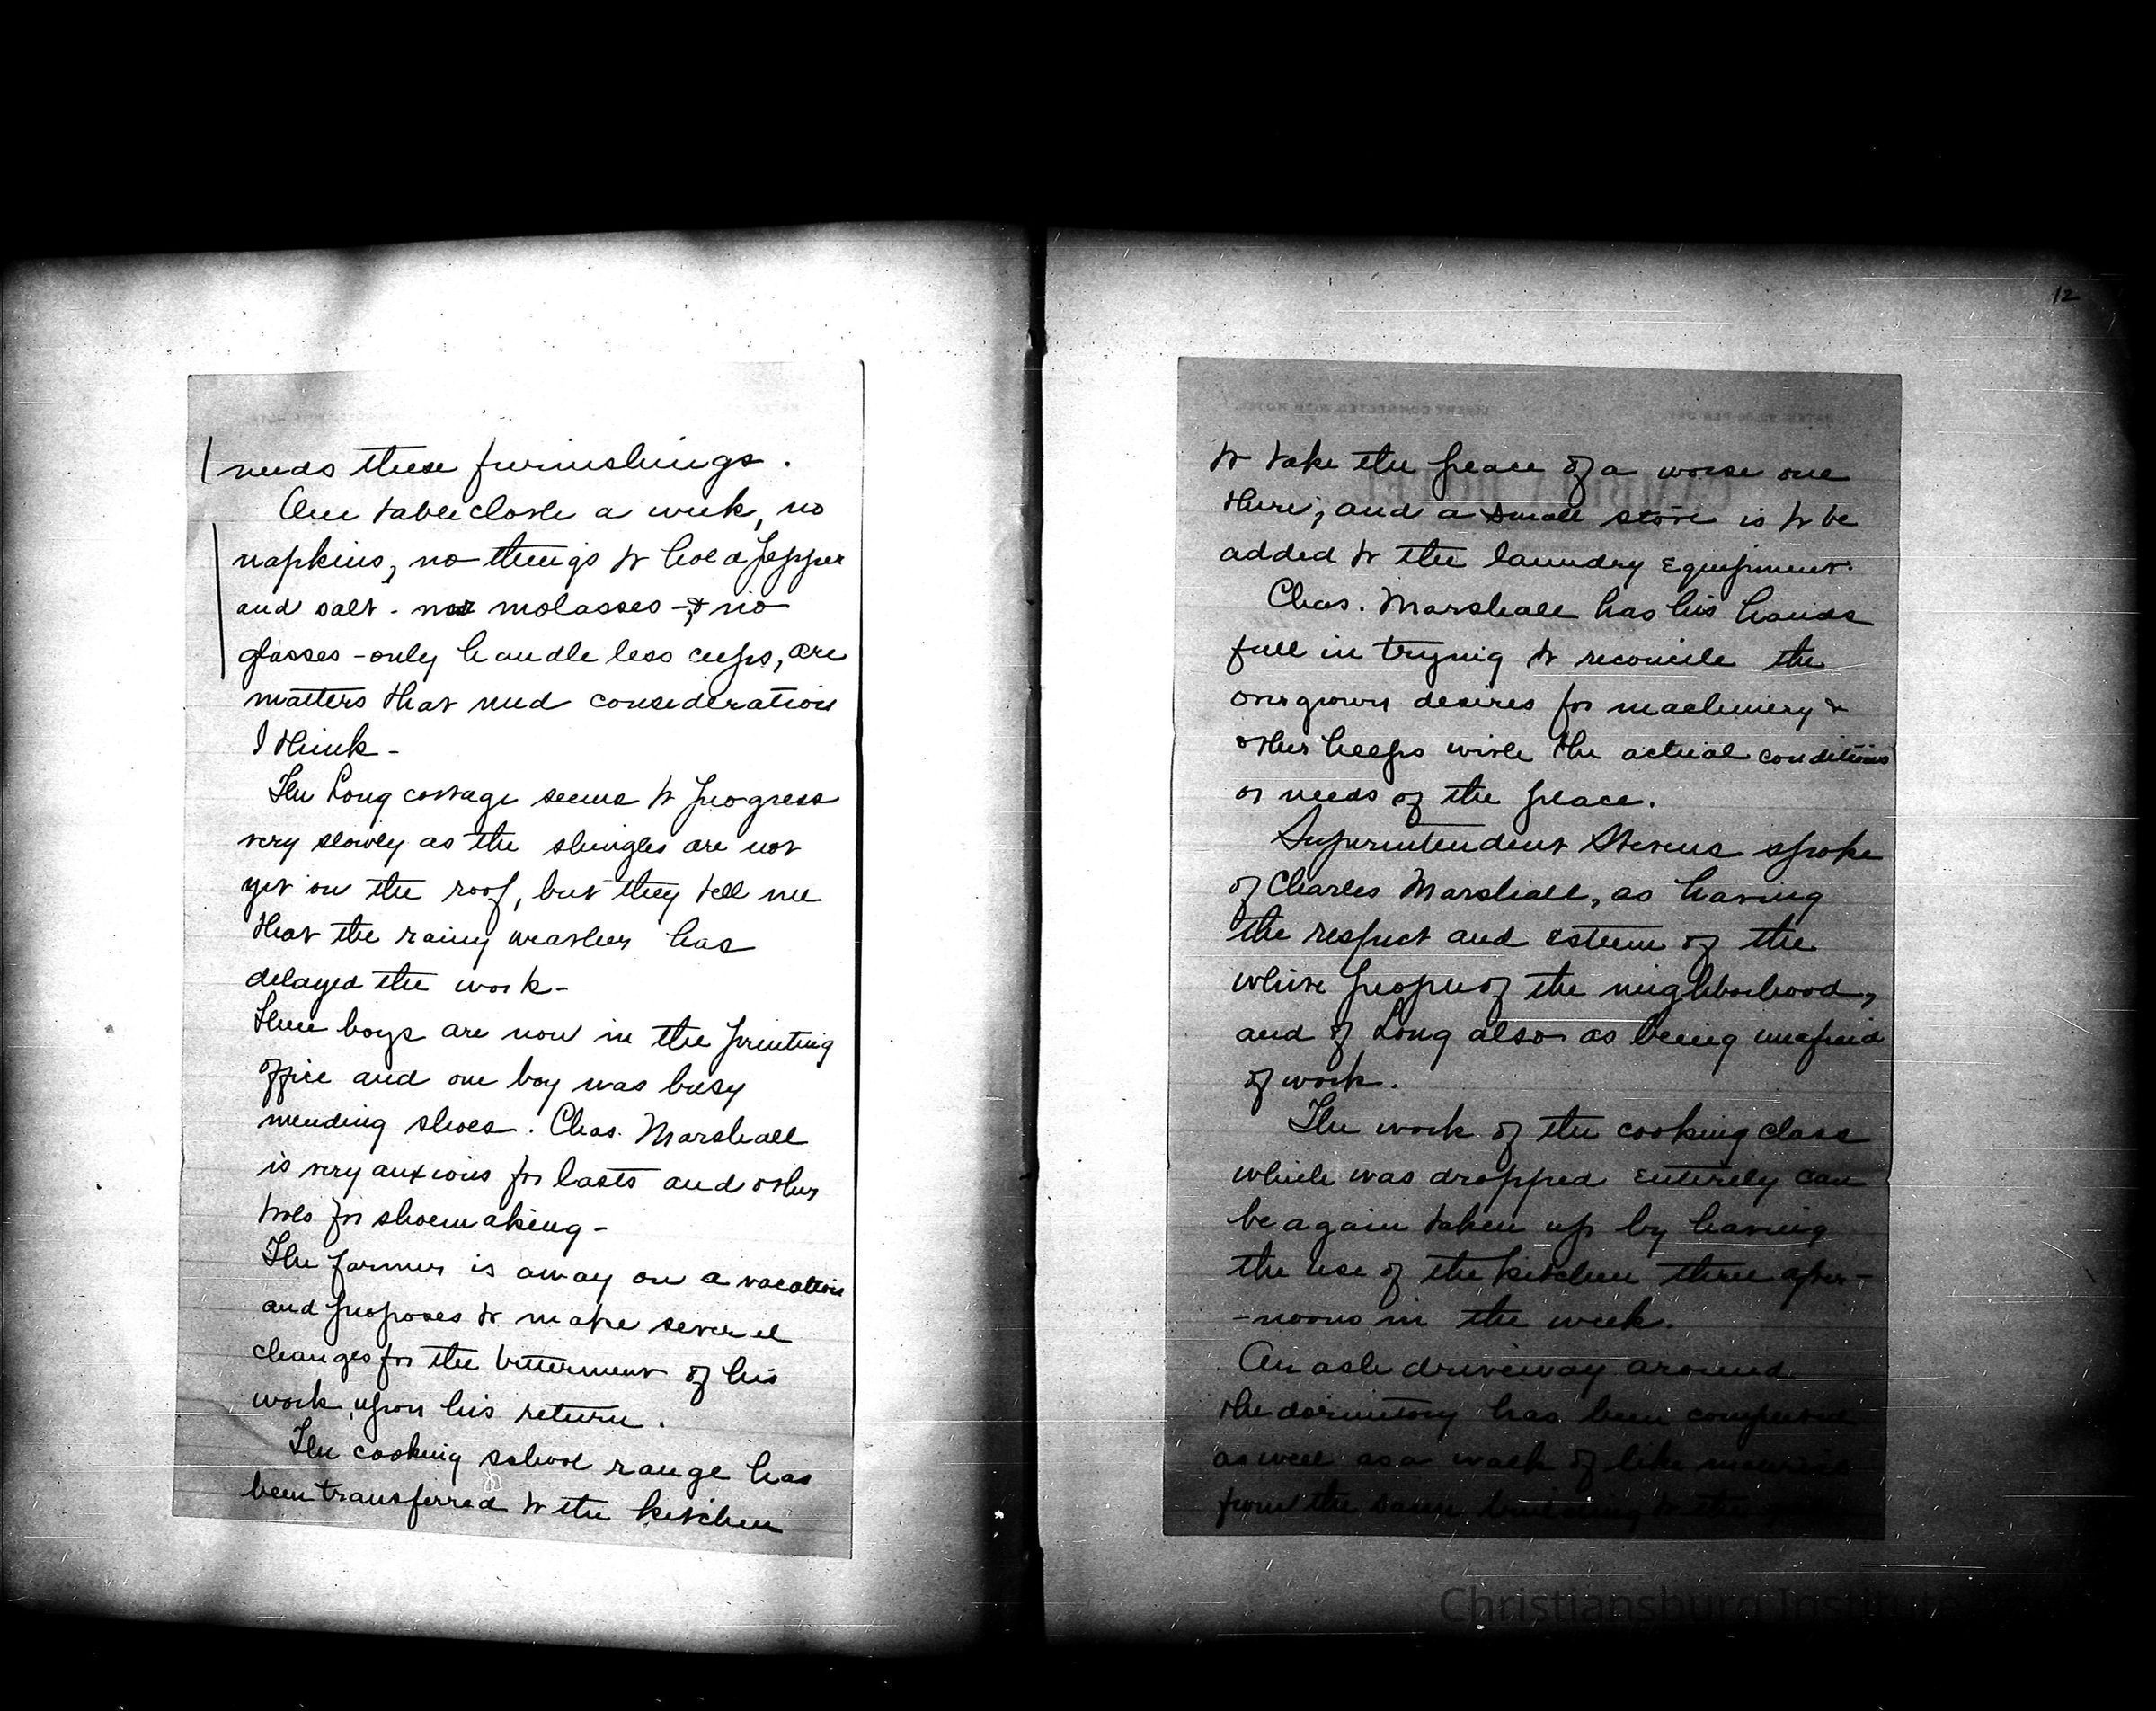 needs these furnishings.
One tablecloth a week, no
napkins, no things to hold pepper
and salt - no molasses - & no
glasses - only handle less cups, are
matters that need consideration
I think -
The Long cottage seems to progress
very slowly as the shingles are not
yet on the roof, but they tell me
that the rainy weather has
delayed the work -
Three boys are now in the printing
office and one boy was busy
mending shoes. Chas. Marshall
is very anxious for lasts and other
tools for shoemaking -
The farmer is away on a vacation
and proposes to make several
changes for the betterment of his
work, upon his return.
The cooking school range has
been transferred to the kitchen
12
to take the place of a worse one
there; and a small stove is to be
added to the laundry equipment.
Chas. Marshall has his hands
full in trying to reconcile the
overgrown desires for machinery &
other helps with the actual conditions
or needs of the place.
Superintendent Stevens spoke
of Charles Marshall, as having
the respect and esteem of the
white people of the neighborhood,
and of Long also as being unafraid
of work.
The work of the cooking class
which was dropped entirely can
be again taken up by having
the use of the kitchen three after-
-noons in the week.
An ash driveway around
the dormitory has been completed
as well as a walk of like material
from the same building to the
Christiansburg Institute